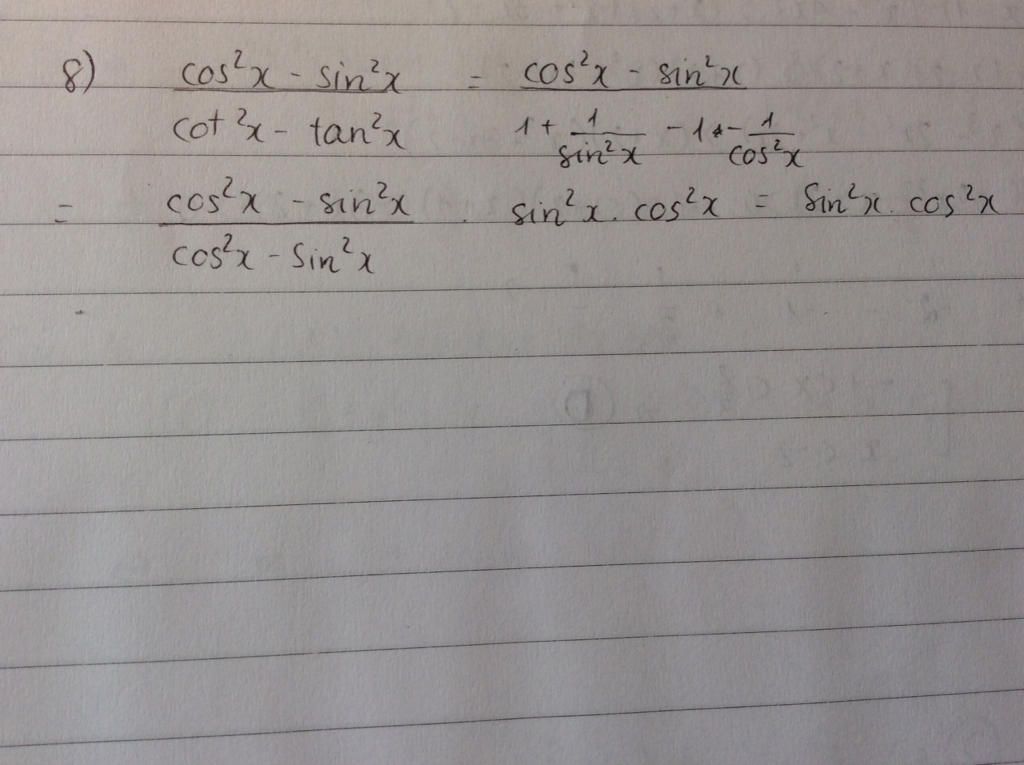 8) cos²x - sin²x / cot²x - tan²x = cos²x - sin²x / 1 + 1/sin²x - 1 - 1/cos²x
= cos²x - sin²x / cos²x - sin²x . sin²x . cos²x = sin²x . cos²x